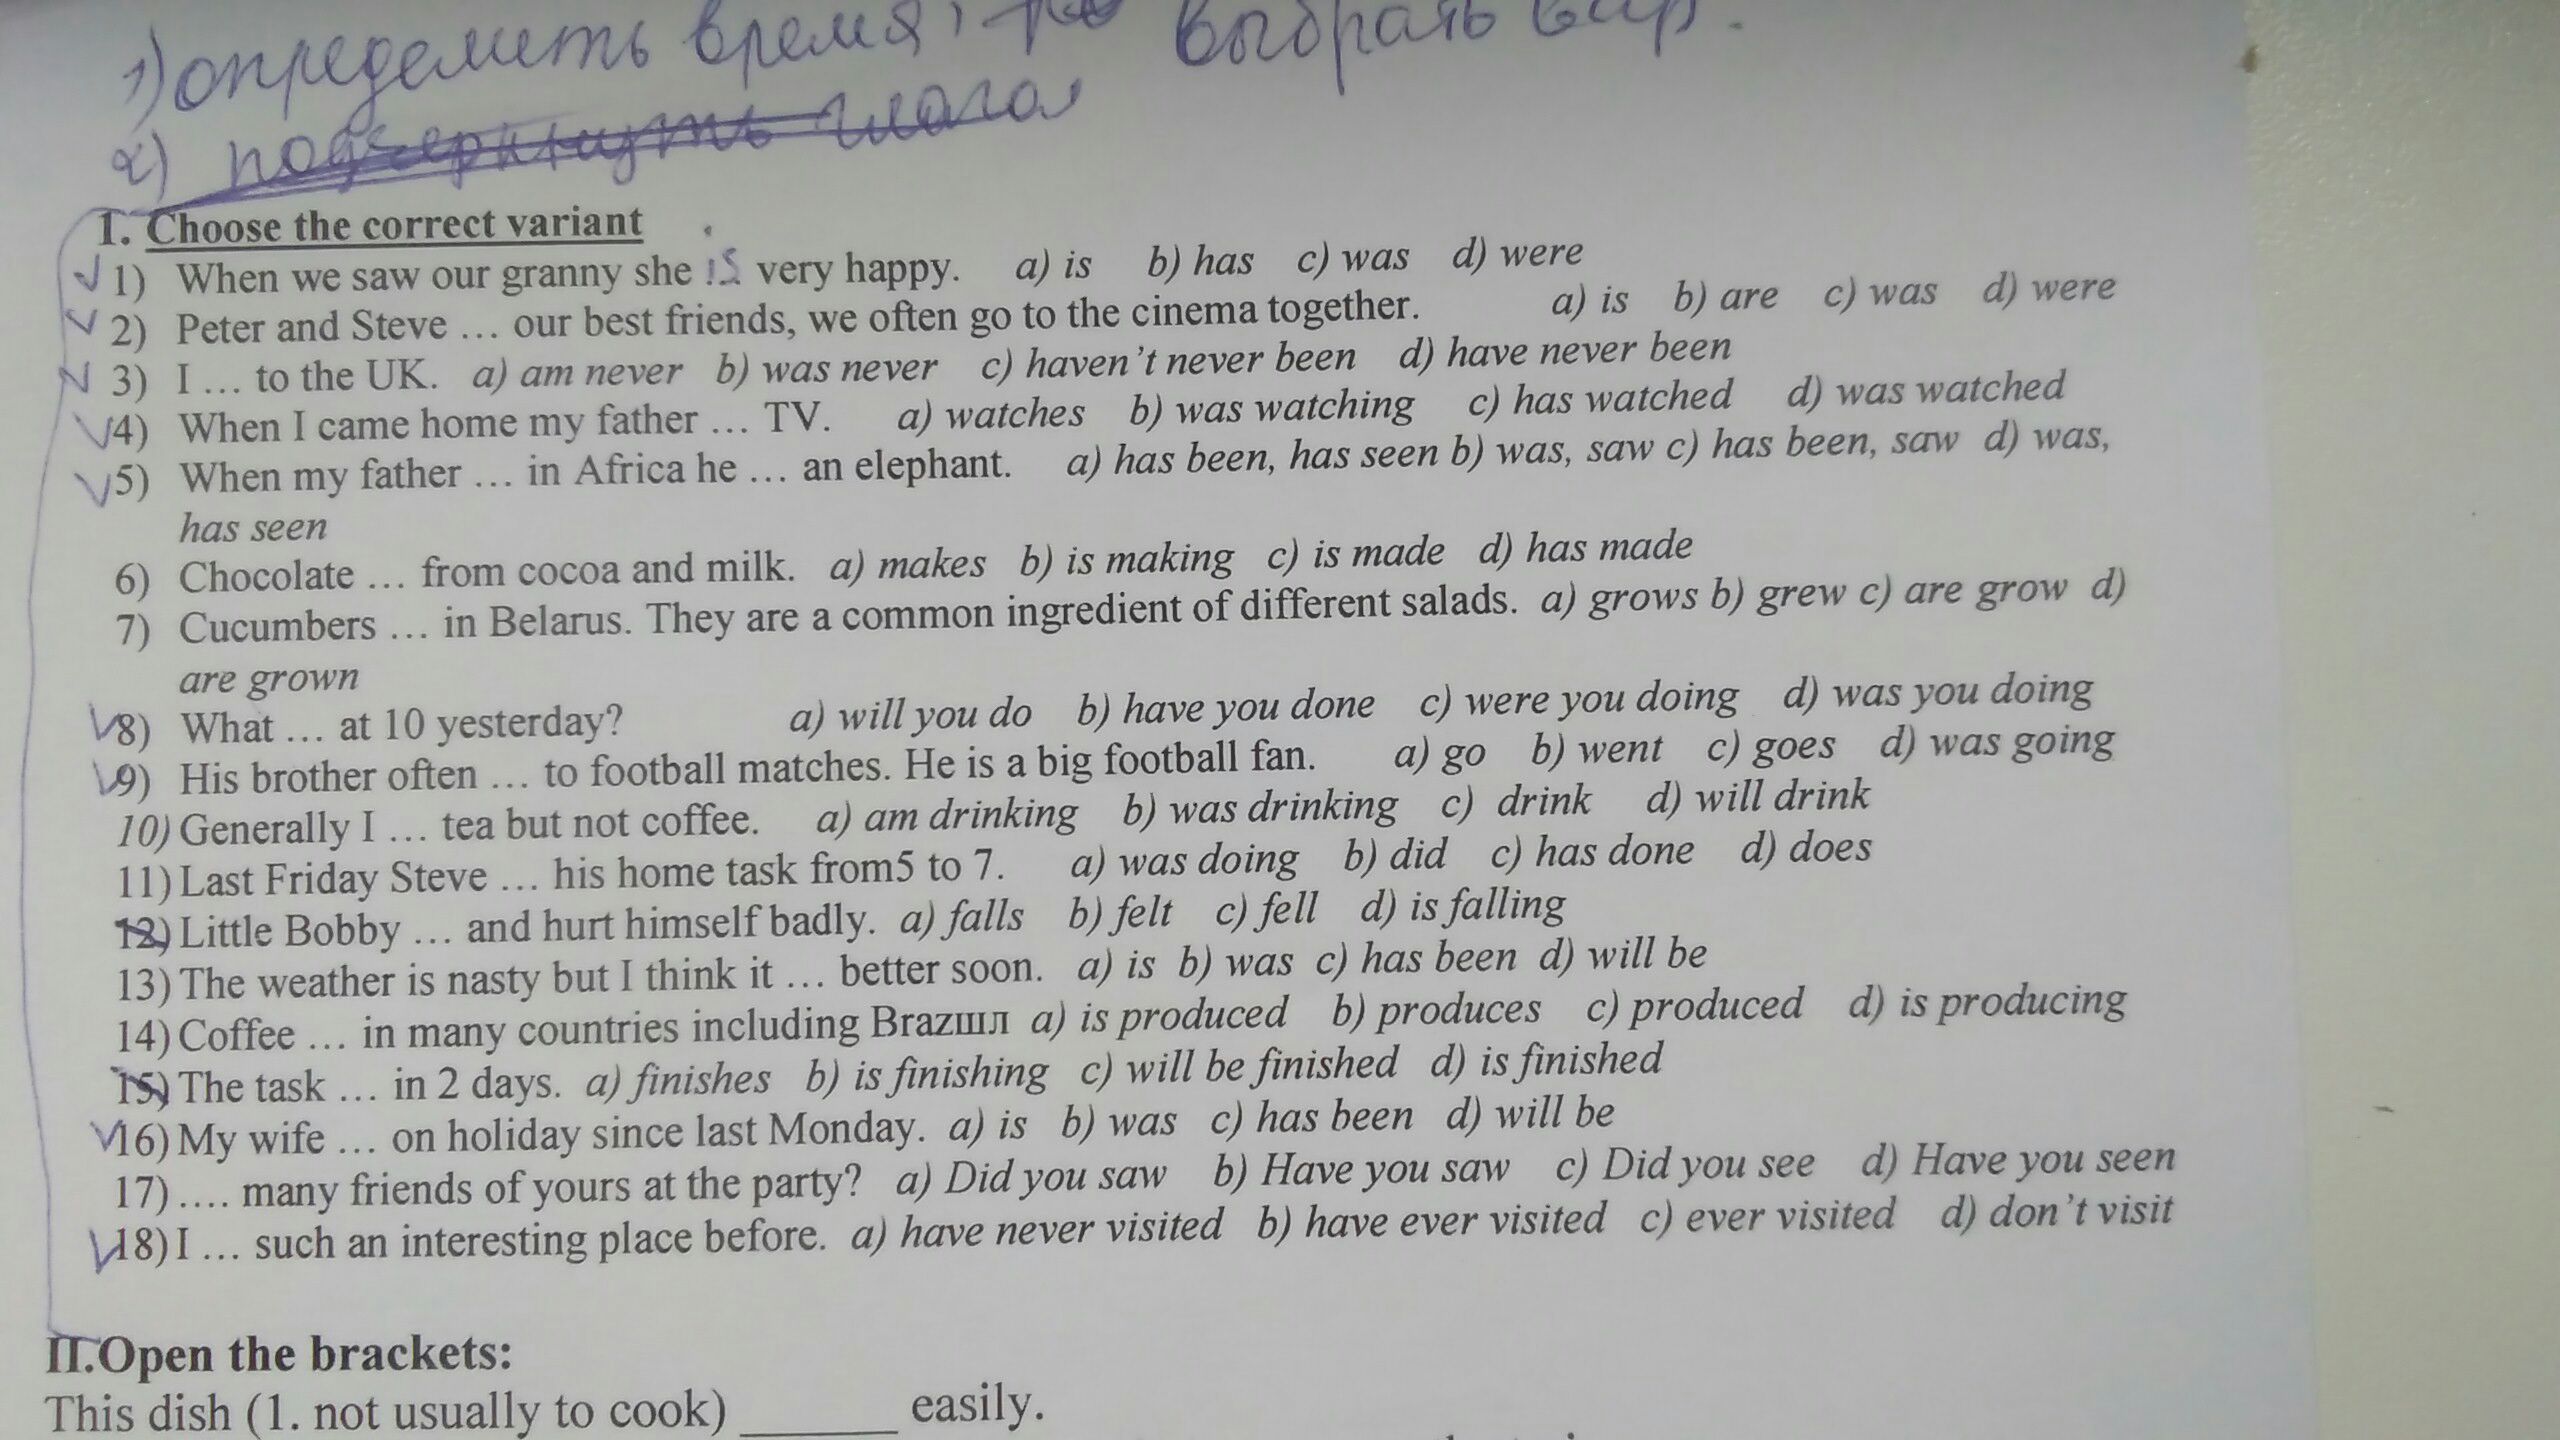 1) определить время, выбрать вар.
2) подчеркнуть глагол
I. Choose the correct variant
1) When we saw our granny she is very happy. a) is b) has c) was d) were
2) Peter and Steve … our best friends, we often go to the cinema together. a) is b) are c) was d) were
3) I … to the UK. a) am never b) was never c) haven't never been d) have never been
4) When I came home my father … TV. a) watches b) was watching c) has watched d) was watched
5) When my father … in Africa he … an elephant. a) has been, has seen b) was, saw c) has been, saw d) was,
has seen
6) Chocolate … from cocoa and milk. a) makes b) is making c) is made d) has made
7) Cucumbers … in Belarus. They are a common ingredient of different salads. a) grows b) grew c) are grow d)
are grown
8) What … at 10 yesterday? a) will you do b) have you done c) were you doing d) was you doing
9) His brother often … to football matches. He is a big football fan. a) go b) went c) goes d) was going
10) Generally I … tea but not coffee. a) am drinking b) was drinking c) drink d) will drink
11) Last Friday Steve … his home task from5 to 7. a) was doing b) did c) has done d) does
12) Little Bobby … and hurt himself badly. a) falls b) felt c) fell d) is falling
13) The weather is nasty but I think it … better soon. a) is b) was c) has been d) will be
14) Coffee … in many countries including Brazшл a) is produced b) produces c) produced d) is producing
15) The task … in 2 days. a) finishes b) is finishing c) will be finished d) is finished
16) My wife … on holiday since last Monday. a) is b) was c) has been d) will be
17) …. many friends of yours at the party? a) Did you saw b) Have you saw c) Did you see d) Have you seen
18) I … such an interesting place before. a) have never visited b) have ever visited c) ever visited d) don't visit
II.Open the brackets:
This dish (1. not usually to cook) ______ easily.